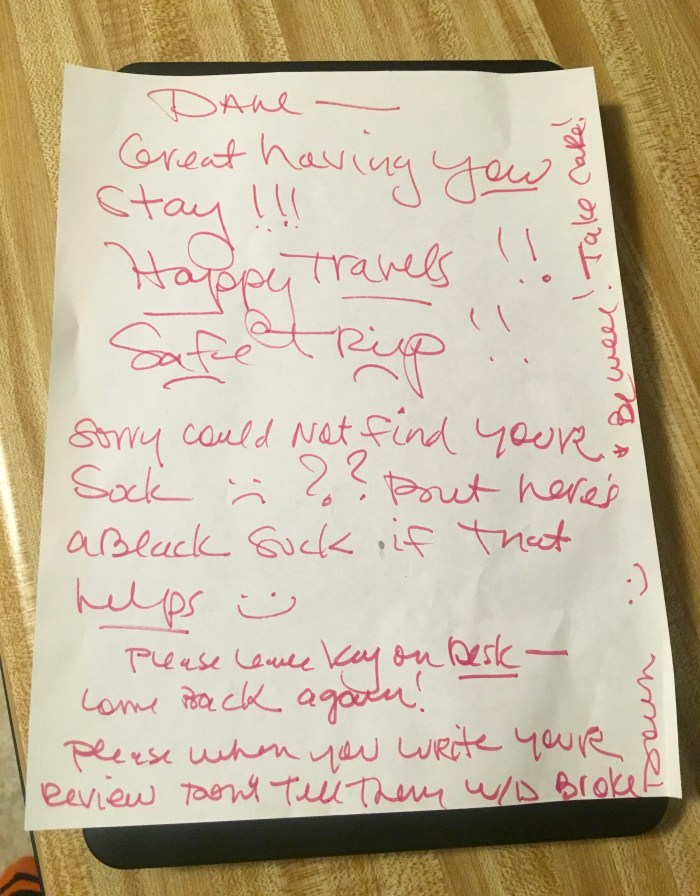 DANE —
Great having you
stay !!!
Happy Travels !!
Safe Trip !!
Sorry could Not find YOUR
Sock :( ?? But here's
a Black Sock if that
helps :)
Please Leave key on Desk —
Come Back again!
Please when you write your
Review Don't Tell Them W/D Broke Down
* Be well! Take care!
:)